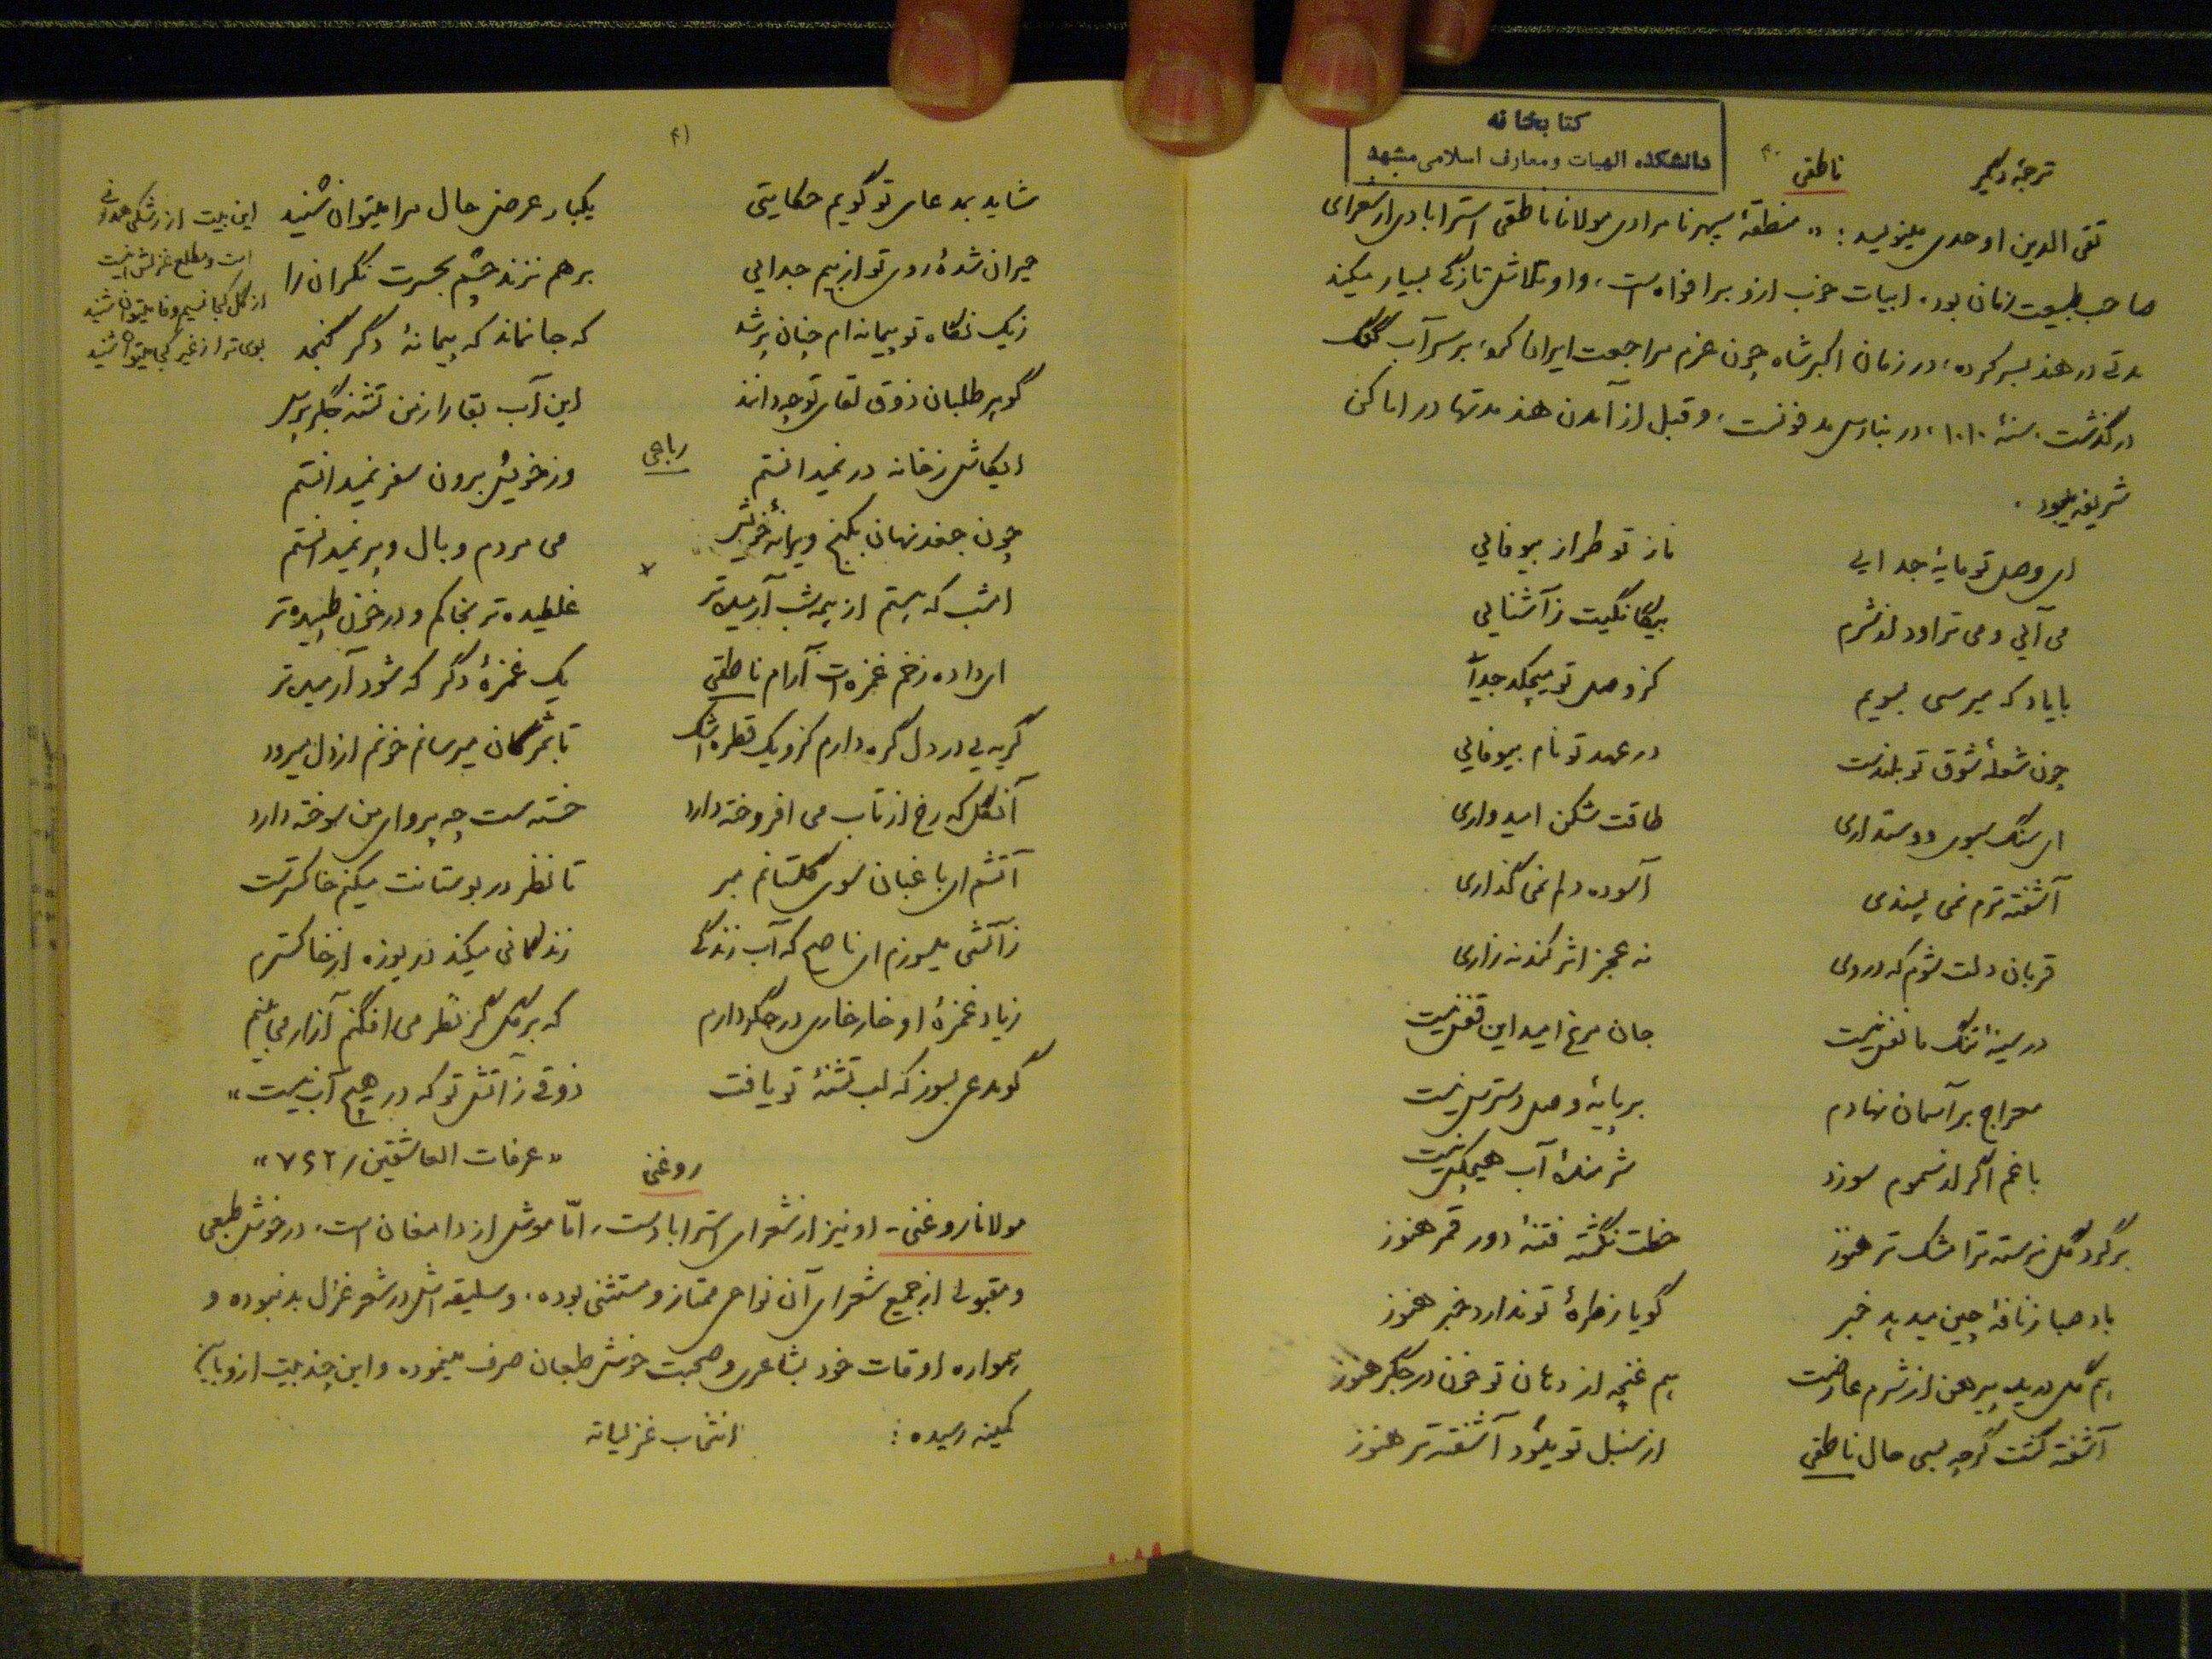 کتابخانه
دانشکده الهیات ومعارف اسلامی مشهد
ترجمهٔ دیگر
ناطقی
۴۰
تقی الدین اوحدی مینویسد: « منطقهٔ سپهر نامرادی مولانا ناطقی استرابادی از شعرای
صاحب طبیعت زمان بود، ابیات خوب ازو بر افواه است، و او تلاش تازگی بسیار میکند
مدتی در هند بسر کرده، در زمان اکبر شاه چون عزم مراجعت ایران کرد، بر سر آب گنگ
درگذشت، سنهٔ ۱۰۱۰، در بنارس مدفونست، و قبل از آمدن هند مدتها در اماکن
شریفه میبود.
ای وصل تو مایهٔ جدایی
ناز تو طراز بیوفائی
می آئی و می تراود از شرم
بیگانگیت ز آشنائی
با یاد که میرسی بسویم
کز وصل تو میچکد جدائی
چون شعلهٔ شوق تو بلندست
در عهد تو نام بیوفائی
ای سنگ سبوی دوستداری
طاقت شکن امیدواری
آشفته ترم نمی پسندی
آسوده دلم نمی گذاری
قربان دلت شوم که در وی
نه عجز اثر کند نه زاری
در سینهٔ تنگ ما نفس نیست
جان مرغ امید این قفس نیست
معراج بر آسمان نهادم
بر پایهٔ وصل دسترس نیست
باغم اگر از سموم سوزد
شرمندهٔ آب هیچکس نیست
بر گرد گل نرسته ترا مشک تر هنوز
خطت نگشته فتنهٔ دور قمر هنوز
باد صبا ز نافهٔ چین میدهد خبر
گویا ز طرهٔ تو ندارد خبر هنوز
هم گل دریده پیرهن از شرم عارضت
هم غنچه از دهان تو خون در جگر هنوز
آشفته گشت گرچه بسی حال ناطقی
از سنبل تو میشود آشفته تر هنوز
۴۱
شاید بمدعای تو گویم حکایتی
یکبار عرض حال مرا میتوان شنید
حیران شدهٔ روی تو از بیم جدایی
برهم نزند چشم بحسرت نگران را
ز یک نگاه تو پیمانه ام چنان پر شد
که جا نماند که پیمانهٔ دگر گنجد
گو هر طلبان ذوق لقای تو چه دانند
این آب بقا را ز من تشنه جگر پرس
رباعی
ایکاش ز خانه در نمیدانستم
وز خویش برون سفر نمیدانستم
چون جغد نهان بکنج ویرانهٔ خویش
می مردم و بال و پر نمیدانستم
امشب که هستم از همه شب آرمیده تر
غلطیده تر بخاکم و در خون طپیده تر
ای داده زخم غمزه ات آرام ناطقی
یک غمزهٔ دگر که شود آرمیده تر
گریه یی در دل گره دارم کزو یک قطره اشک
تا بمژگان میرسانم خونم از دل میرود
آنگل که رخ از تاب می افروخته دارد
خسته ست چه پروای من سوخته دارد
آتشم ای باغبان سوی گلستانم مبر
تا نظر در بوستانت میکنم خاکسترست
ز آتشی میسوزم ای ناصح که آب زندگی
زندگانی میکند دریوزه از خاکسترم
زیاد غمزهٔ او خار خاری در جگر دارم
که بر گل گر نظر می افگنم آزار می بینم
گو مدعی بسوز که لب تشنهٔ تو یافت
ذوقی ز آتش تو که در هیچ آب نیست»
« عرفات العاشقین / ۷۶۲»
این بیت از رشکی همدانی
است و مطلع غزلش اینست
از گل کجا نسیم وفا میتوان شنید
بوی ترا ز غیر کجا میتوان شنید
روغنی
مولانا روغنی - او نیز از شعرای استرابادست، امّا مولدش از دامغان است، در خوش طبعی
و مقبولی از جمیع شعرای آن نواحی ممتاز و مستثنی بوده، و سلیقه اش در شعر غزل بد نبوده و
همواره اوقات خود بشاعری و صحبت خوش طبعان صرف مینموده و این چند بیت ازو باین
کمینه رسیده:
انتخاب غزلیاته